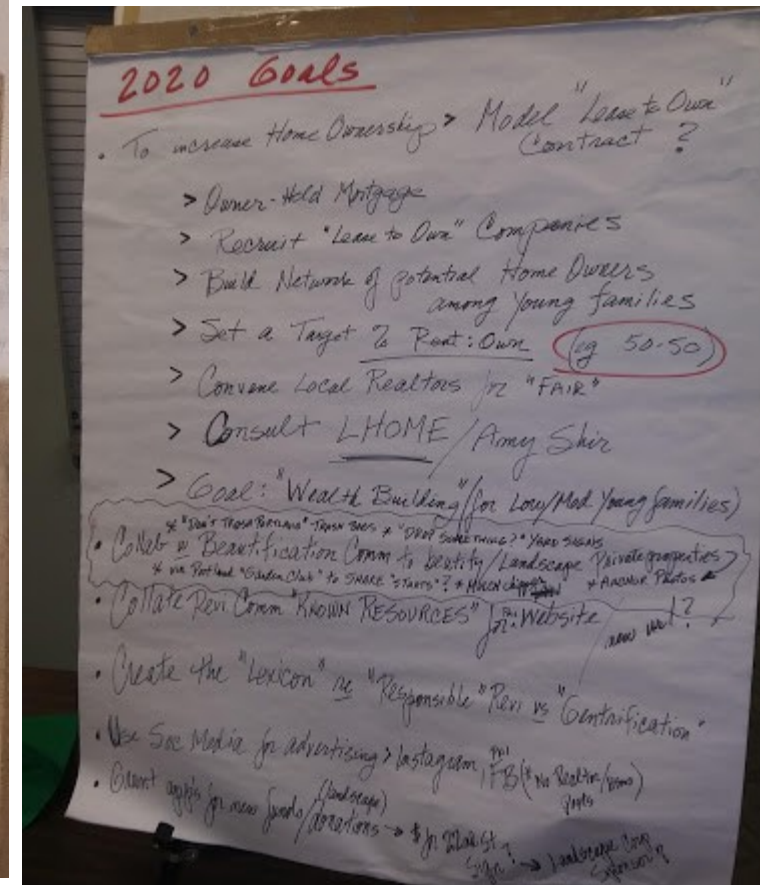 2020 Goals
• To increase Home Ownership > Model "Lease to Own"
Contract ?
> Owner-Hold Mortgage
> Recruit "Lease to Own" Companies
> Build Network of potential Home Owners
among Young families
> Set a Target % Rent : Own (eg 50-50)
> Convene Local Realtors for "FAIR"
> Consult LHOME / Amy Shir
> Goal: "Wealth Building" (for Low/Mod Young families)
* "DON'T TRASH PORTLAND" TRASH BAGS * "DROP SOMETHING?" YARD SIGNS
• Collab w Beautification Comm to beatify/Landscape Private properties
* via Portland "Garden Club" to SHARE "STARTS"? * MULCH * ANCHOR Photos
• Collate Revi Comm "KNOWN RESOURCES" for the Website
new url?
• Create the "Lexicon" re "Responsible" Revi vs "Gentrification"
• Use Soc Media for advertising > Instagram, FB (* No Realtor/
• Grant app's for new funds/donations → $ for 22nd St
(landscape)
Sign? → Landscape Corp
Sponsor?